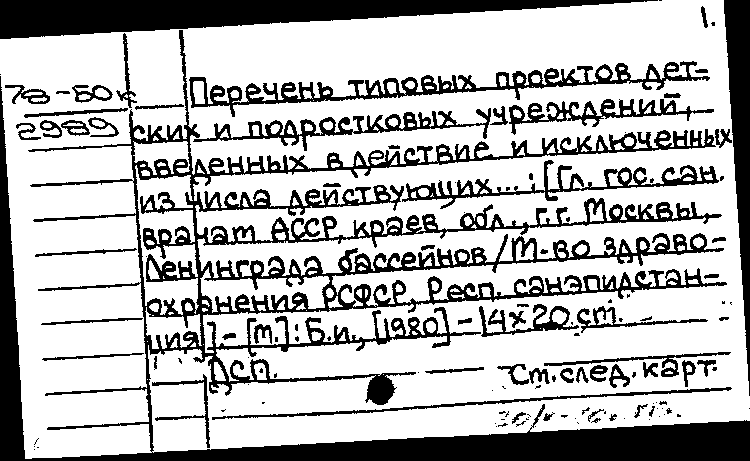 1.
78-50к
2989
Перечень типовых проектов дет-
ских и подростковых учреждений,
введенных в действие и исключенных
из числа действующих...: [Гл. гос. сан.
врачам АССР, краев, обл., г.г. Москвы,
Ленинграда, бассейнов/М-во здраво-
охранения РСФСР, Респ. санэпидстан-
ция]. - [М.]: Б.и., [1980] - 14х20 см.
ДСП.
См. след. карт.